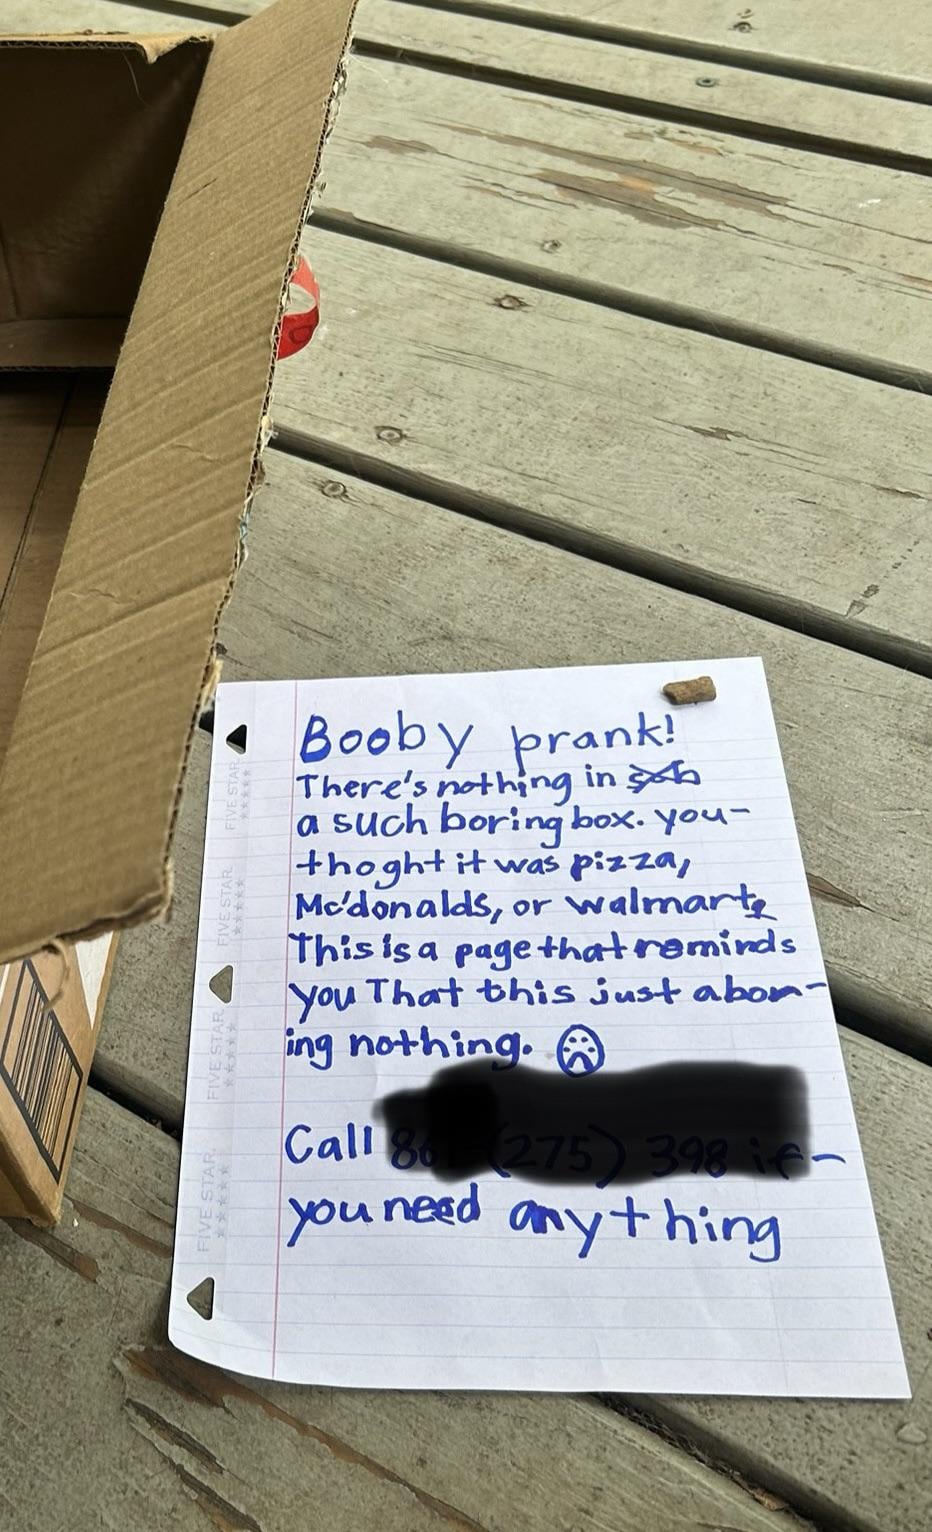 Booby prank!
There's nothing in
a such boring box. you-
thoght it was pizza,
Mc'donalds, or walmart?
This is a page that reminds
you That this just a bor-
ing nothing.
Call
you need anything
FIVE STAR
FIVE STAR
FIVE STAR
FIVE STAR